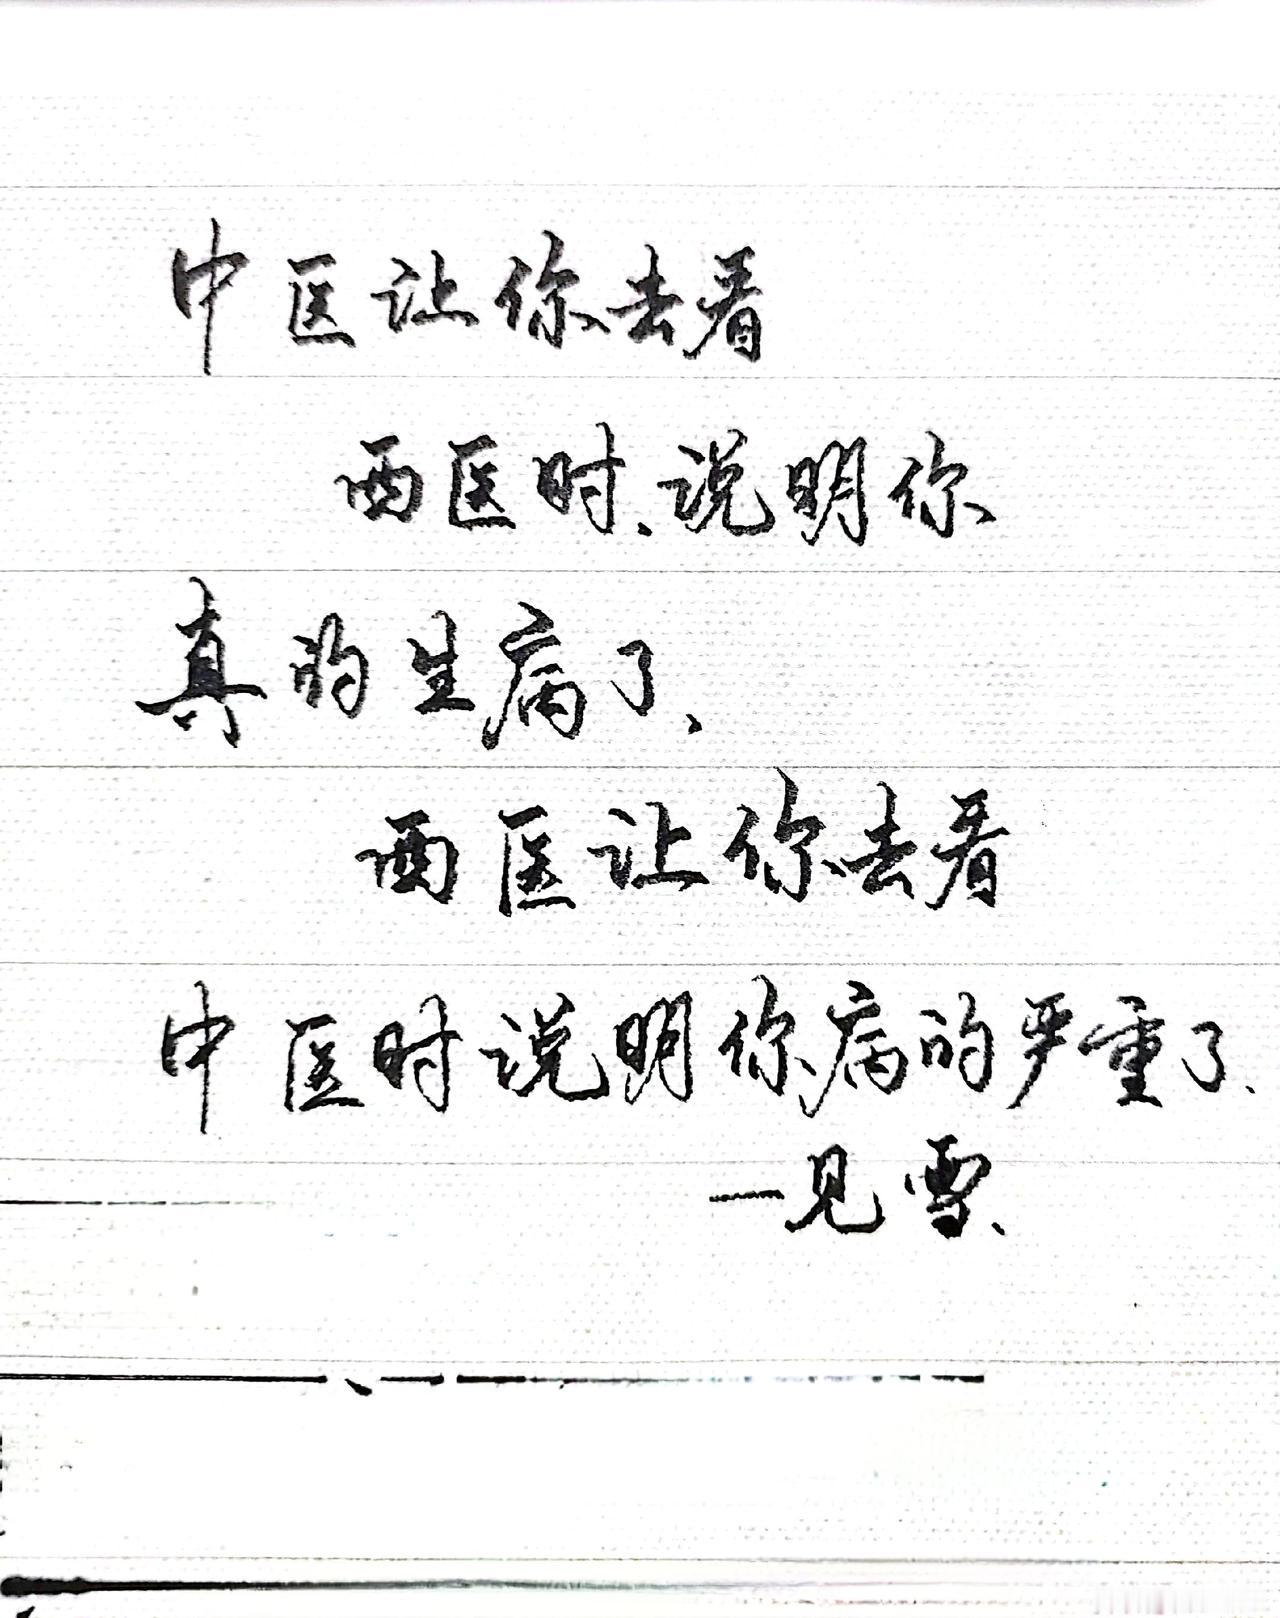 中医让你去看
西医时、说明你
真的生病了、
西医让你去看
中医时说明你病的严重了、
一见雪、